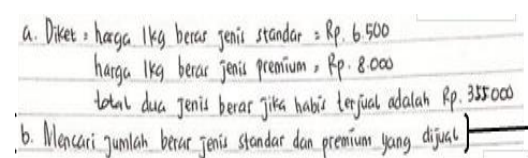 a. Diket : harga 1kg beras jenis standar : Rp. 6.500
harga 1kg beras jenis premium : Rp. 8.000
total dua jenis beras jika habis terjual adalah Rp. 355000
b. Mencari jumlah beras jenis standar dan premium yang dijual